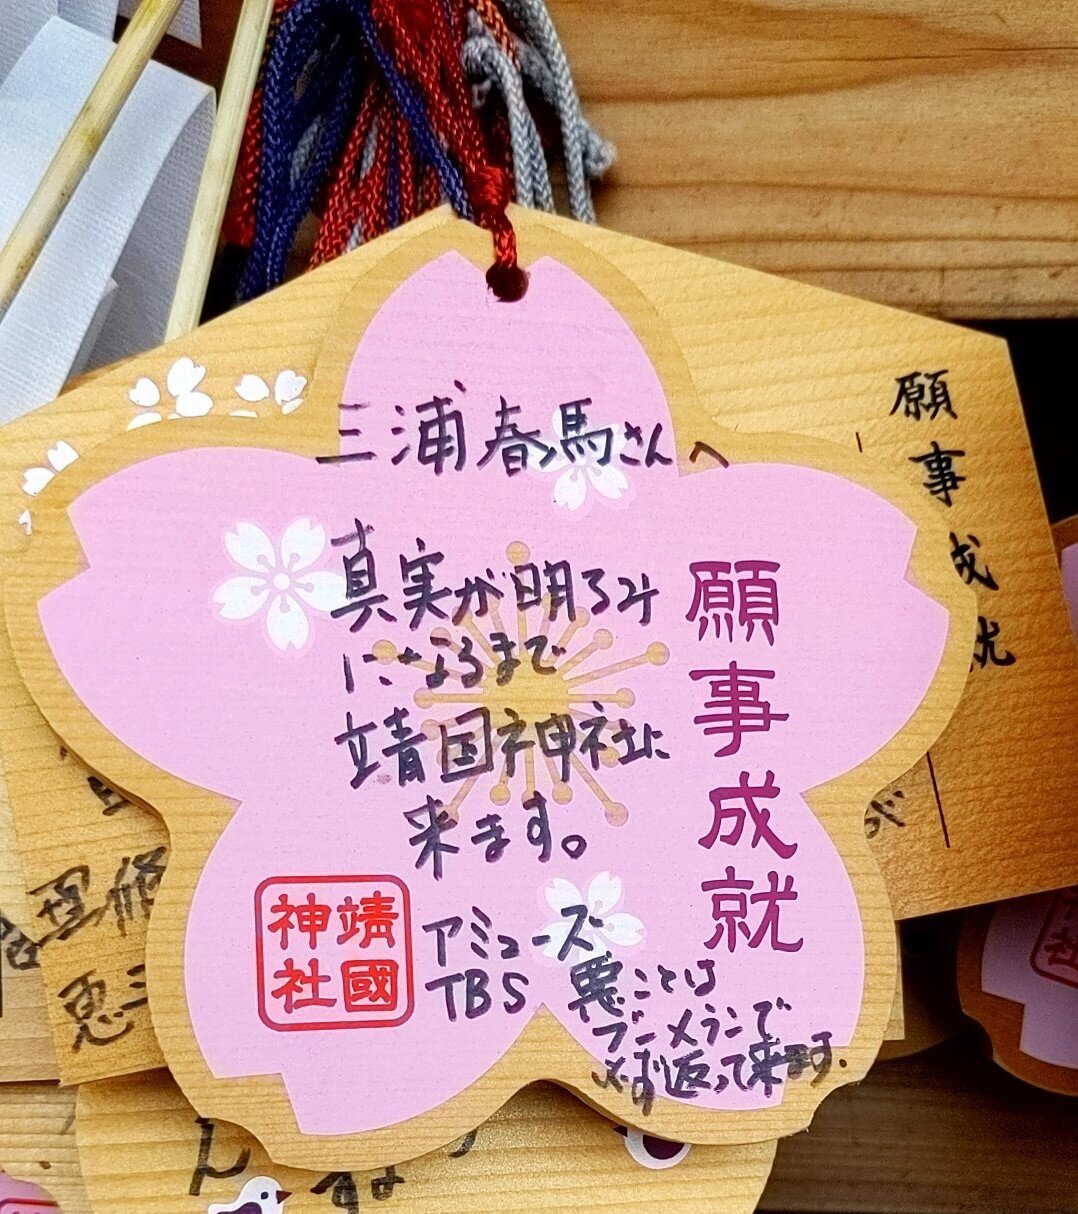 三浦春馬さんへ
真実が明るみ
になるまで
靖国神社に
来ます。
アミューズ
TBS
悪ことは
ブーメランで
必ず返って来ます.
願事成就
靖國
神社
願事成就
理修
恵三
ん